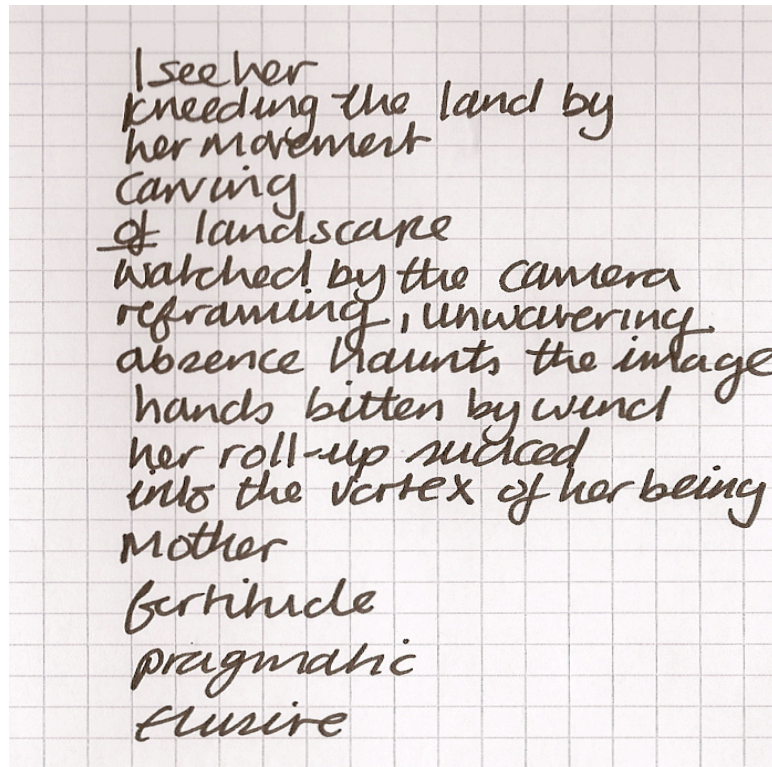 I see her
kneeding the land by
her movement
Carving
of landscape
watched by the camera
reframing, unwavering.
absence haunts the image
hands bitten by wind
her roll-up sucked
into the vortex of her being
Mother
fortitude
pragmatic
elusive